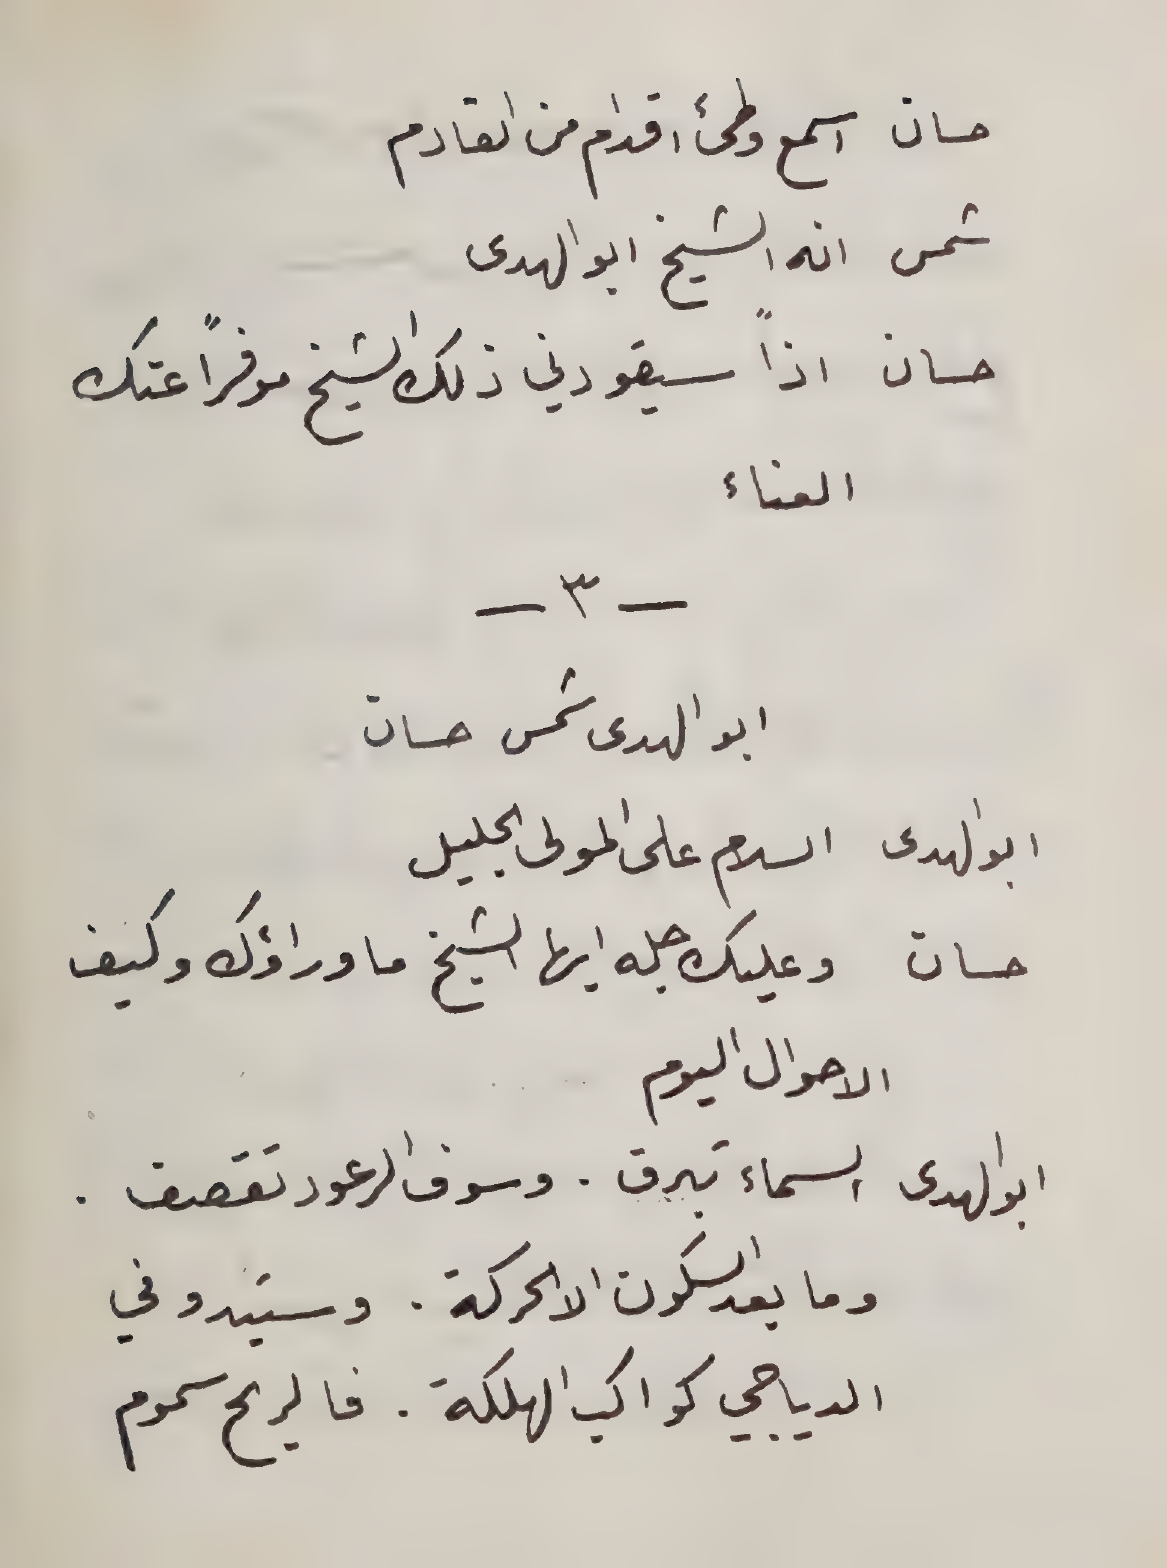 حسان اسمع وطئ اقدام من القادم
شمس انه الشيخ ابو الهدى
حسان اذاً سيقودني ذلك الشيخ موفراً عنك
العناء
— ٣ —
ابو الهدى شمس حسان
ابو الهدى السلام على المولى الجليل
حسان وعليك جله ايها الشيخ ما وراؤك وكيف
الاحوال اليوم
ابو الهدى السماء تبرق . وسوف الرعود تقصف .
وما بعد السكون الا الحركة . وستبدو في
الدياجي كواكب الهلكة . فالريح سموم